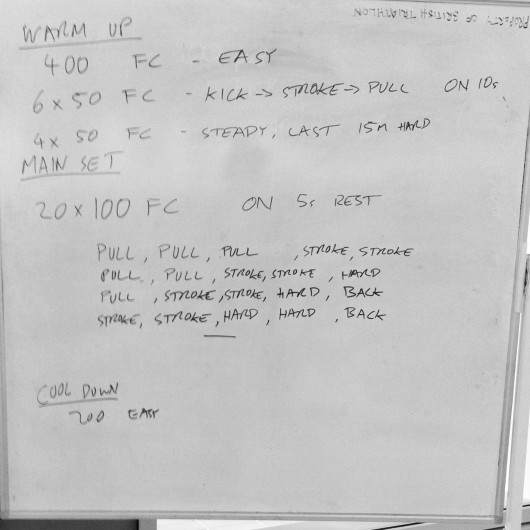 PROPERTY OF BRITISH TRIATHLON
WARM UP
400 FC - EASY
6 x 50 FC - KICK → STROKE → PULL ON 10s
4 x 50 FC - STEADY, LAST 15m HARD
MAIN SET
20 x 100 FC ON 5s REST
PULL, PULL, PULL, STROKE, STROKE
PULL, PULL, STROKE, STROKE, HARD
PULL, STROKE, STROKE, HARD, BACK
STROKE, STROKE, HARD, HARD, BACK
COOL DOWN
200 EASY